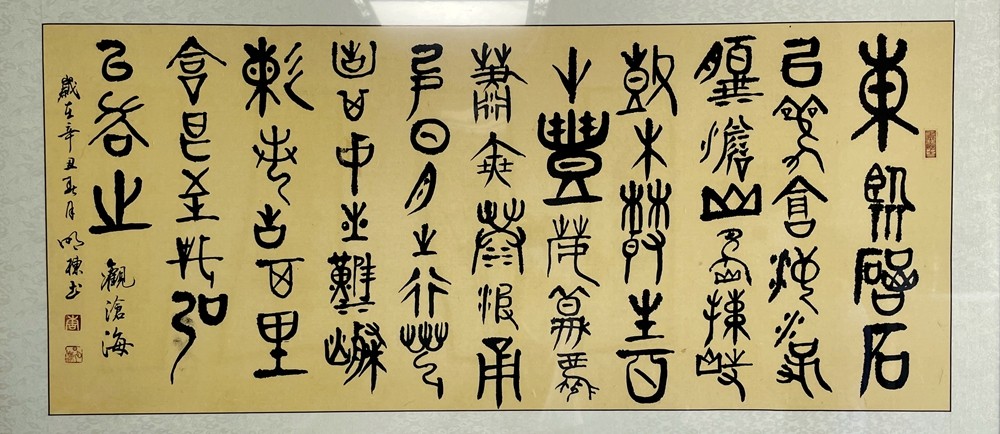 東臨碣石
以觀滄海水何
澹澹山島竦峙
樹木叢生百
草豐茂秋風
蕭瑟洪波涌
起日月之行若
出其中星漢燦
爛若出其里
幸甚至哉歌
以詠志
觀滄海
歲在辛丑夏月明棟書